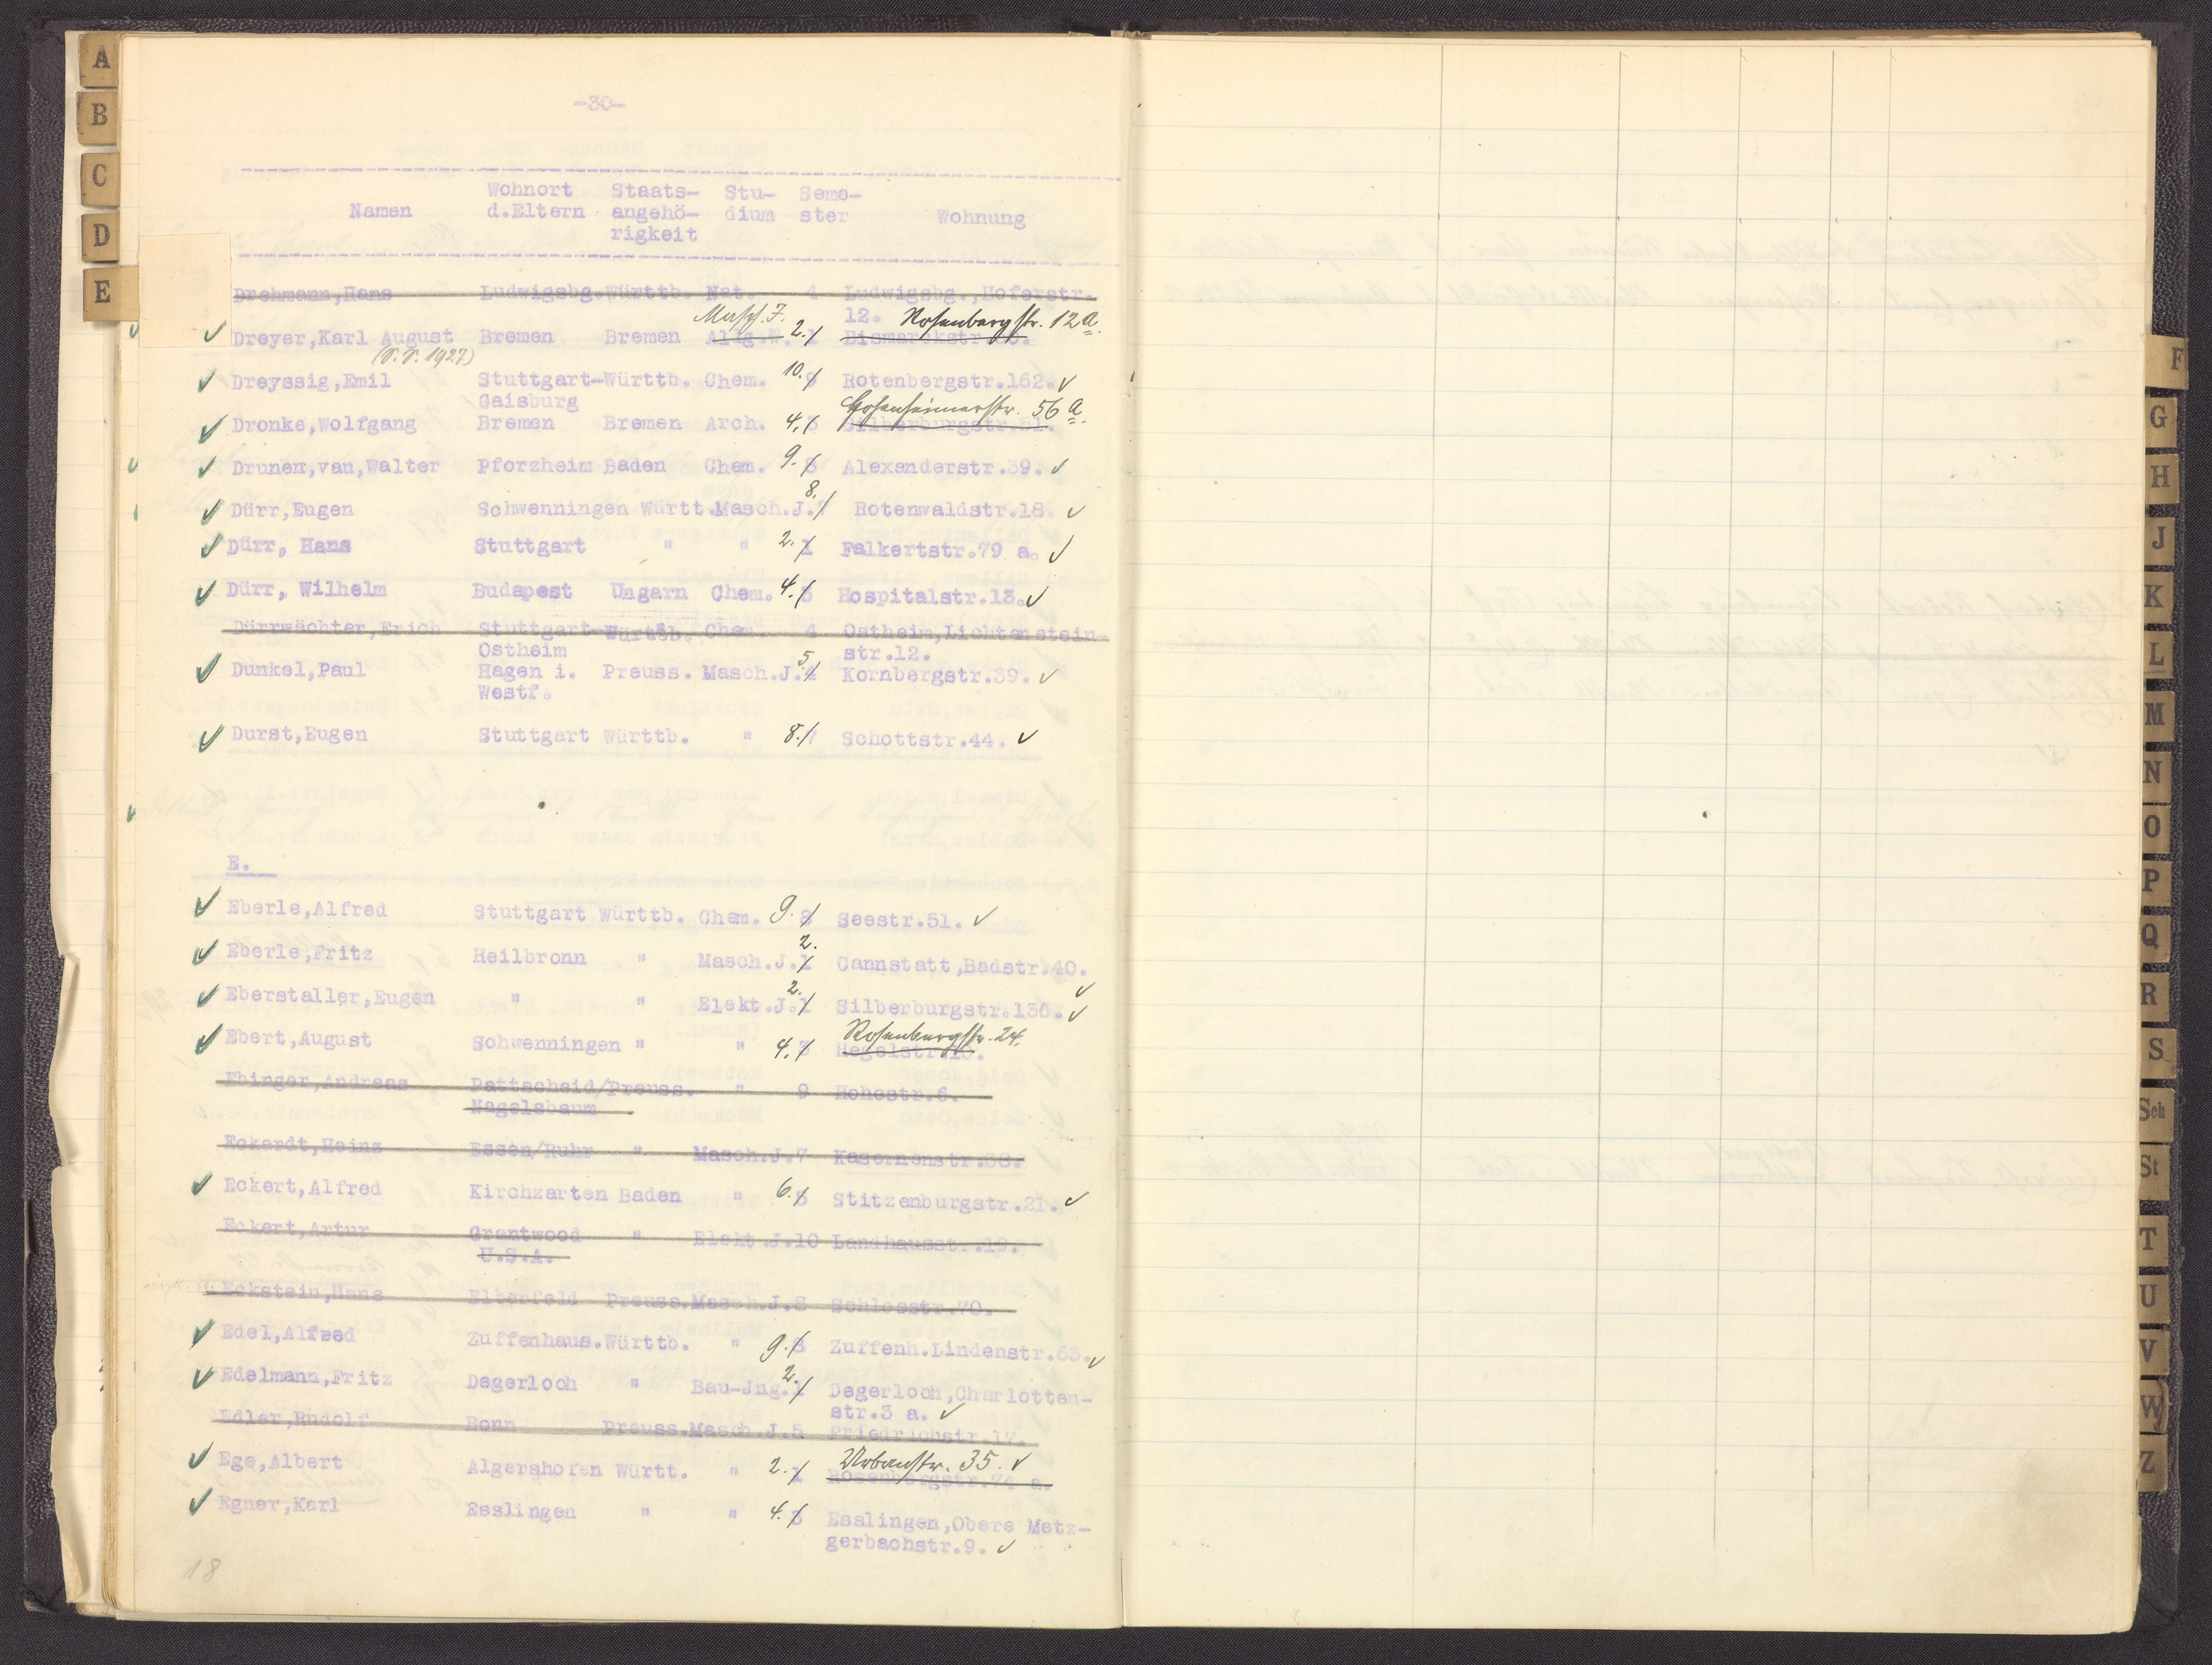 -30-
Namen Wohnort d.Eltern Staats-angehö-rigkeit Stu-dium Seme-ster Wohnung
Drehmann,Hans Ludwigsbg.Württb. Nat. 4 Ludwigsbg.,Hoferstr.
12.
Masch.J. 2. Rosenbergstr. 12a.
Dreyer,Karl August Bremen Bremen Allg.W. 1 Bismarckstr.
(S.S. 1927)
Dreyssig,Emil Stuttgart-Württb. Chem. 10. Rotenbergstr.162.
Gaisburg
Hohenheimerstr. 56 a.
Dronke,Wolfgang Bremen Bremen Arch. 4. 3 Silberburgstr.
Drunen,van,Walter Pforzheim Baden Chem. 9. 8 Alexanderstr.39.
8.
Dürr,Eugen Schwenningen Württ.Masch.J. Rotenwaldstr.18.
Dürr, Hans Stuttgart " " 2. 1 Falkertstr.79 a.
Dürr, Wilhelm Budapest Ungarn Chem. 4. 3 Hospitalstr.13.
Dürrwächter,Erich Stuttgart-Württb. Chem. 4 Ostheim,Lichtenstein-
Ostheim str.12.
5.
Dunkel,Paul Hagen i. Preuss. Masch.J.4 Kornbergstr.39.
Westf.
Durst,Eugen Stuttgart Württb. " 8. Schottstr.44.
E.
Eberle,Alfred Stuttgart Württb. Chem. 9. 8 Seestr.51.
2.
Eberle,Fritz Heilbronn " Masch.J.1 Cannstatt,Badstr.40.
2.
Eberstaller,Eugen " " Elekt.J.1 Silberburgstr.136.
Rosenbergstr. 24.
Ebert,August Schwenningen " " 4. 3 Hegelstr.
Ebinger,Andreas Pattscheid/Preuss. " 9 Hohestr.6.
Nagelsbaum
Eckardt,Heinz Essen/Ruhr " Masch.J.7 Kasernenstr.38.
Eckert,Alfred Kirchzarten Baden " 6. Stitzenburgstr.21.
Eckert,Artur Grantwood " Elekt.J.10 Landhausstr.19.
U.S.A.
Eckstein,Hans Elberfeld Preuss.Masch.J.8 Schlosstr.70.
Edel,Alfred Zuffenhaus.Württb. " 9. 8 Zuffenh.Lindenstr.63.
2.
Edelmann,Fritz Degerloch " Bau-Jng.1 Degerloch,Charlotten-
str.3 a.
Edler,Rudolf Bonn Preuss.Masch.J.5 Friedrichstr.17.
Urbanstr. 35.
Ege,Albert Algershofen Württ. " 2. 1 Rosenbergstr.74 a.
Egner,Karl Esslingen " " 4. 3 Esslingen,Obere Metz-
gerbachstr.9.
18
A
B
C
D
E
F
G
H
J
K
L
M
N
O
P
Q
R
S
Sch
St
T
U
V
W
Z